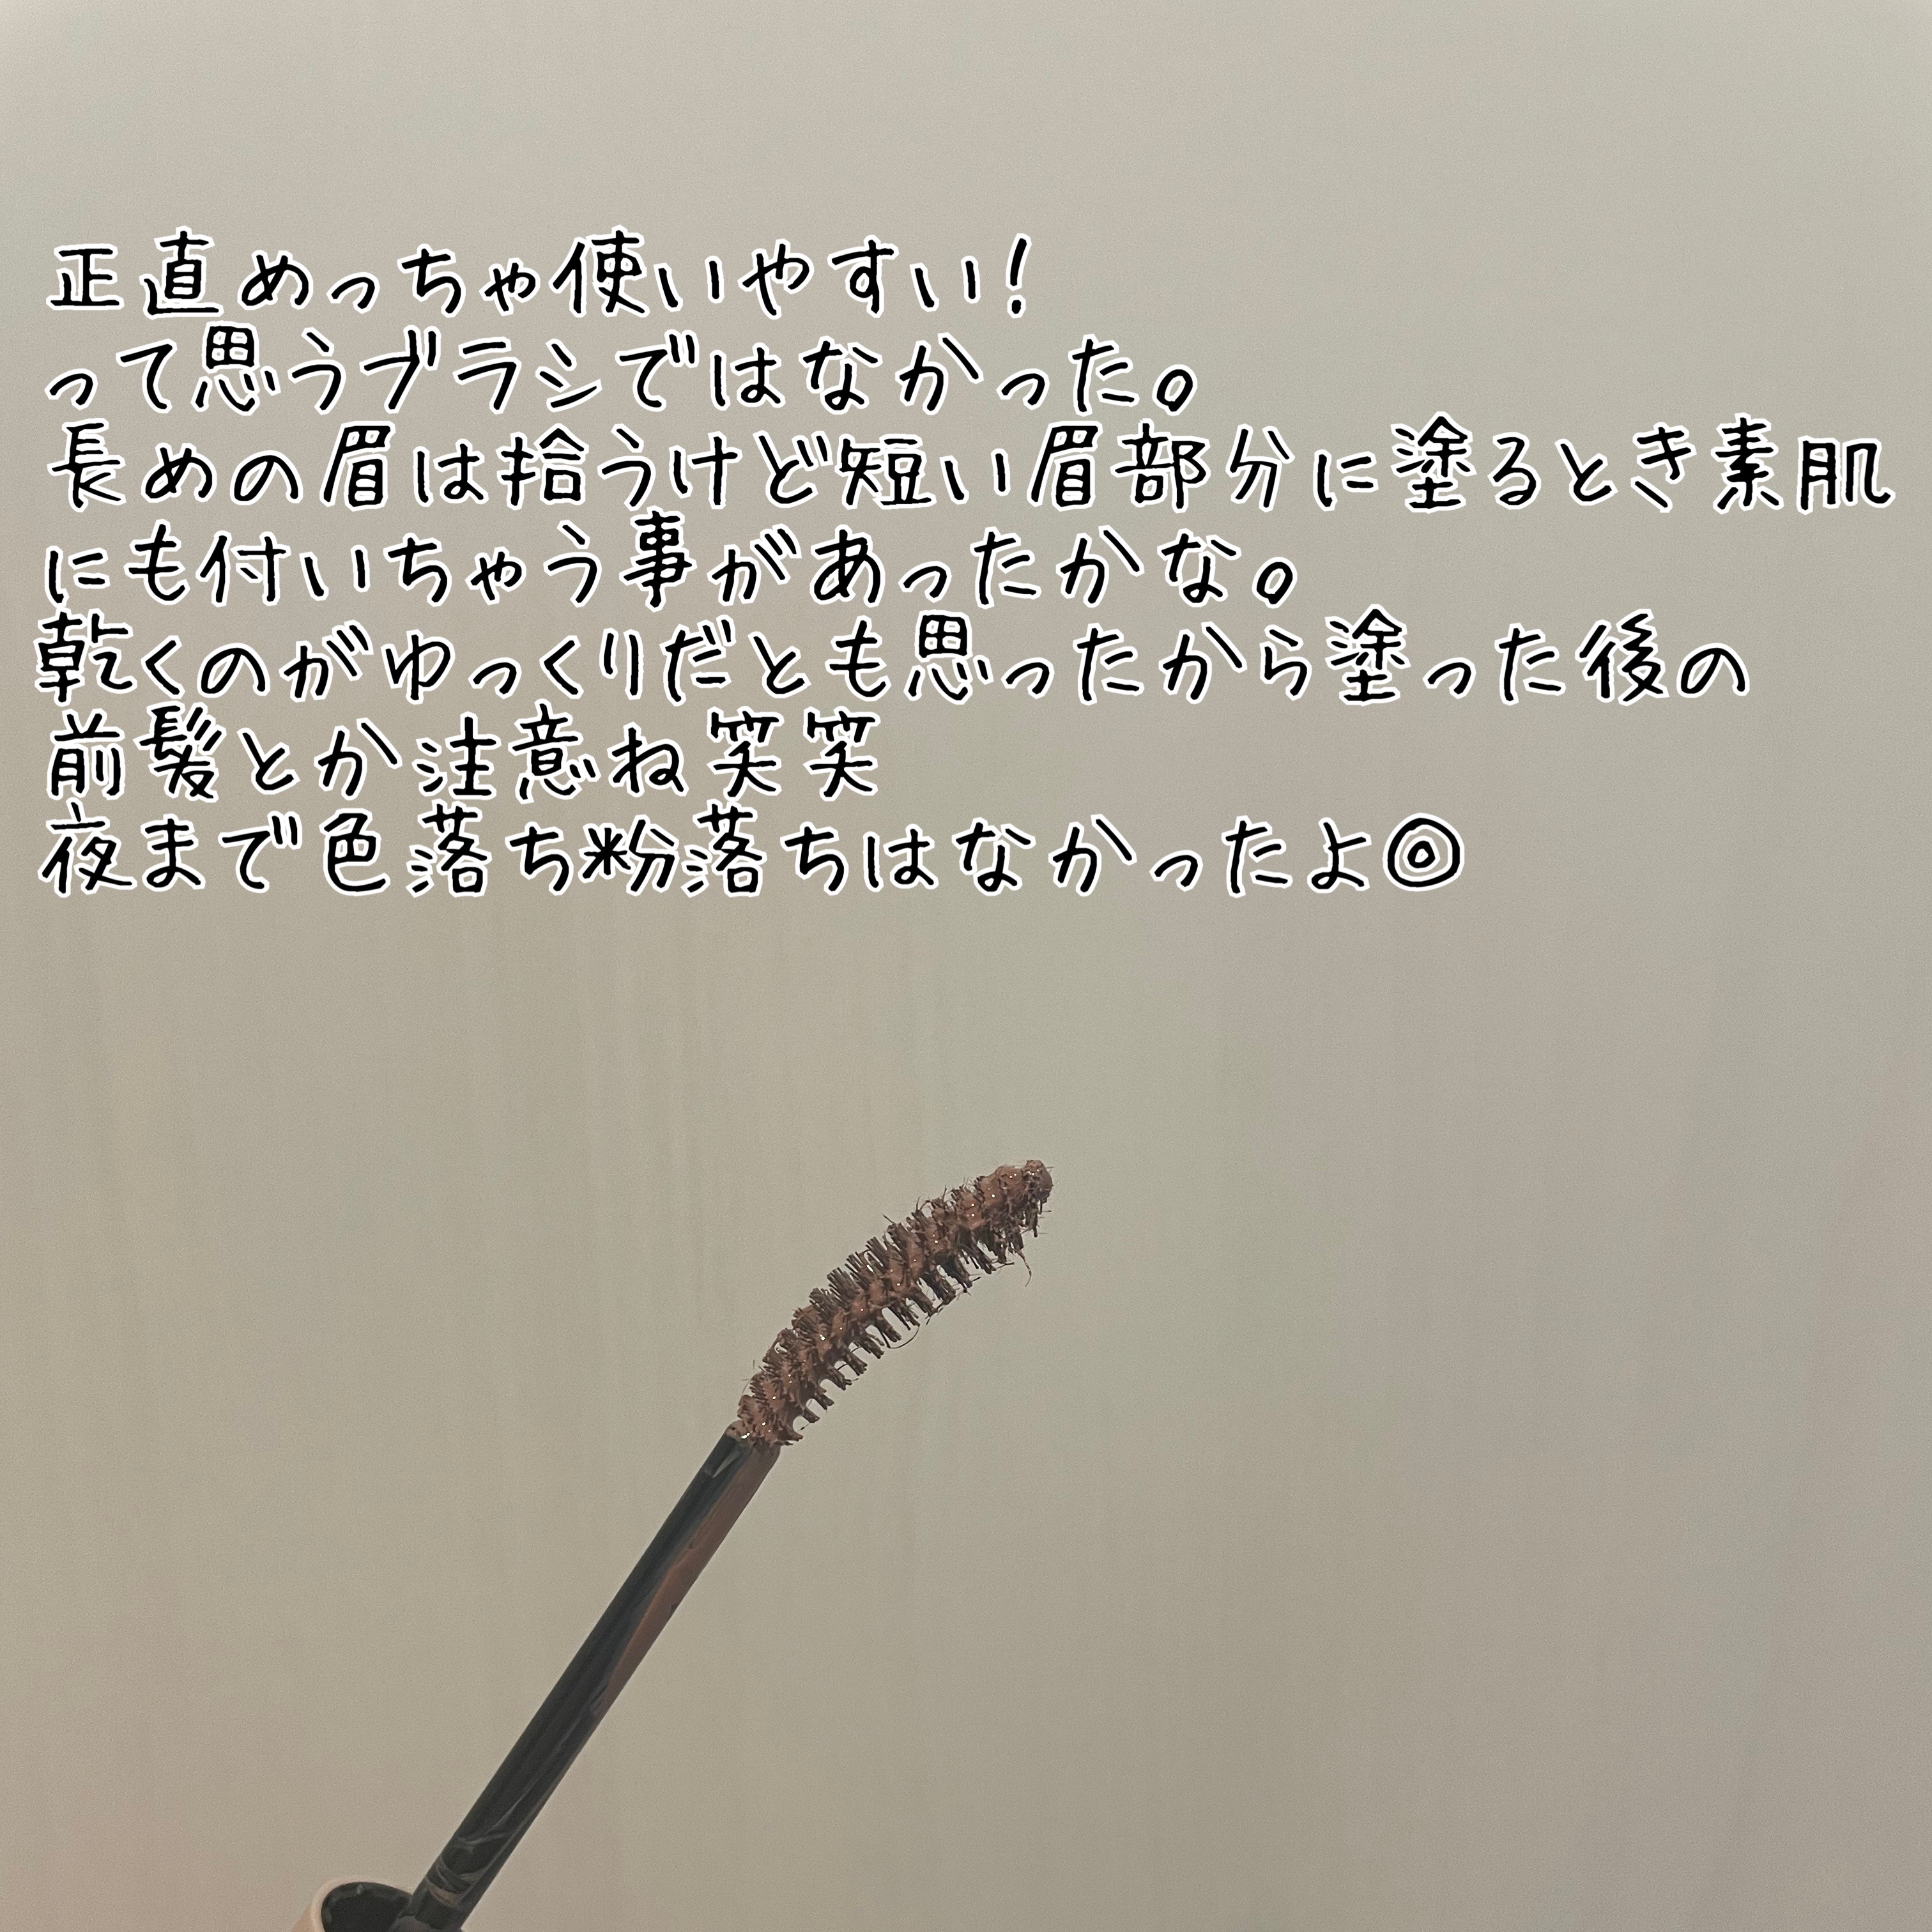 正直めっちゃ使いやすい!
って思うブラシではなかった。
長めの眉は拾うけど短い眉部分に塗るとき素肌
にも付いちゃう事があったかな。
乾くのがゆっくりだとも思ったから塗った後の
前髪とか注意ね笑笑
夜まで色落ち粉落ちはなかったよ◎